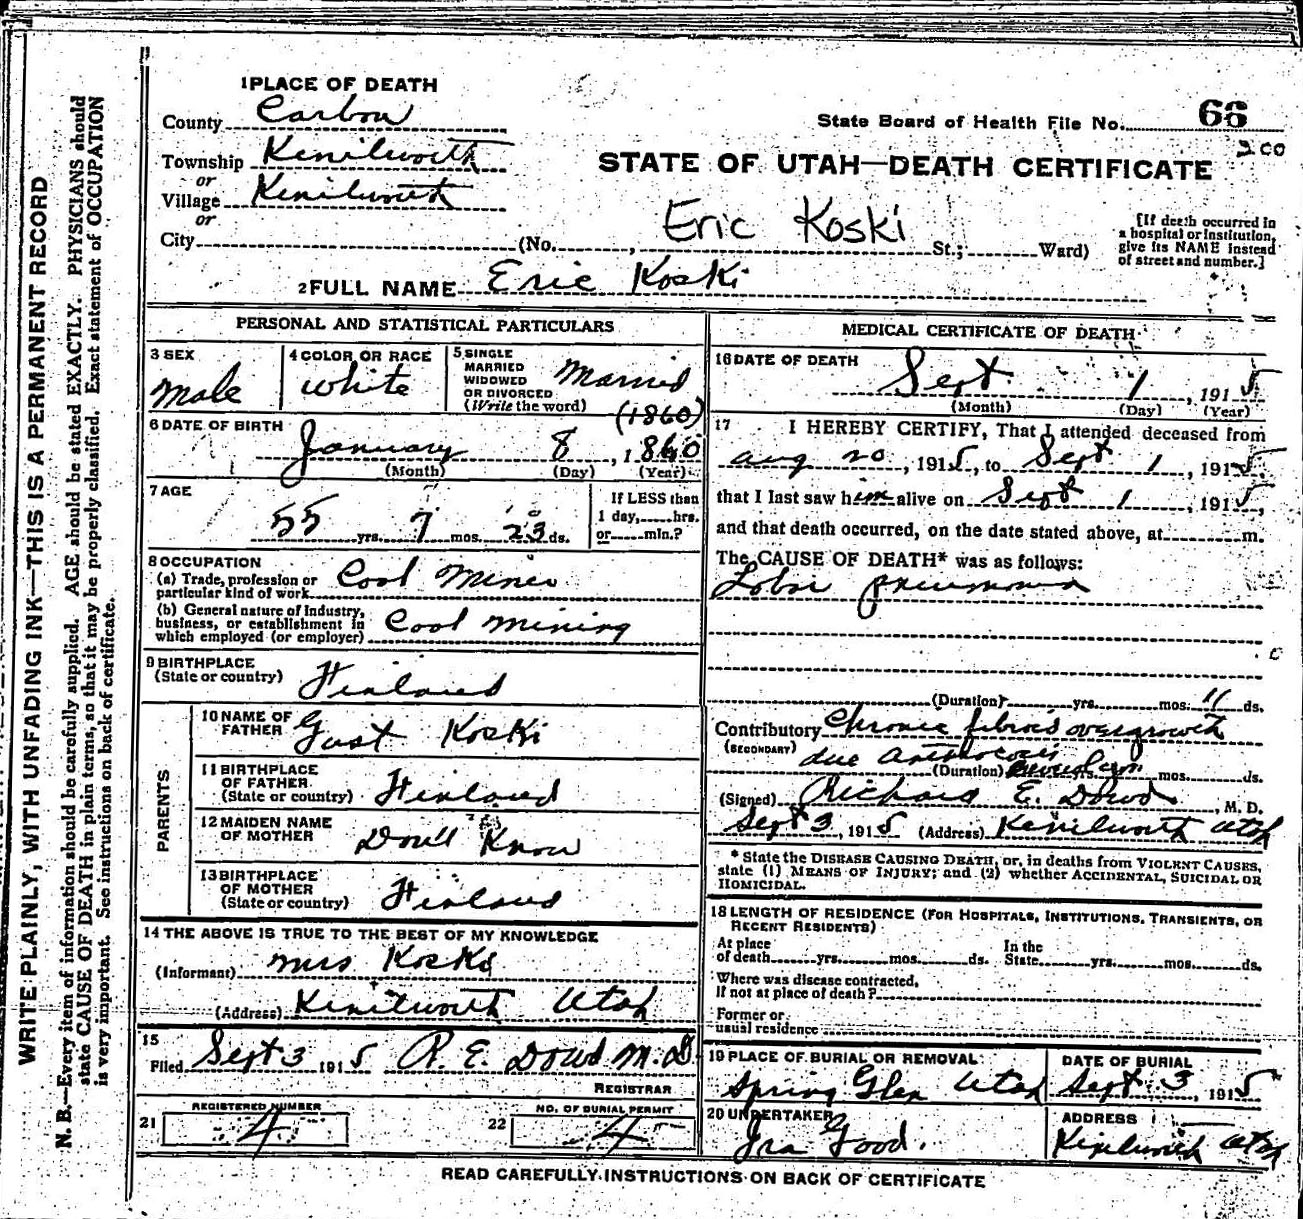 WRITE PLAINLY, WITH UNFADING INK—THIS IS A PERMANENT RECORD
N. B.—Every item of information should be carefully supplied. AGE should be stated EXACTLY. PHYSICIANS should
state CAUSE OF DEATH in plain terms, so that it may be properly classified. Exact statement of OCCUPATION
is very important. See instructions on back of certificate.
1 PLACE OF DEATH
County Carbon
State Board of Health File No. 66
200
Township Kenilworth
or
STATE OF UTAH—DEATH CERTIFICATE
Village Kenilworth
or
City (No. , Eric Koski St.; Ward)
[If death occurred in
a hospital or institution,
give its NAME instead
of street and number.]
2 FULL NAME Eric Koski
PERSONAL AND STATISTICAL PARTICULARS
3 SEX
Male
4 COLOR OR RACE
White
5 SINGLE
MARRIED
WIDOWED
OR DIVORCED
(Write the word)
Married
(1860)
6 DATE OF BIRTH
January 8, 1860
(Month) (Day) (Year)
7 AGE
55 yrs. 7 mos. 23 ds.
If LESS than
1 day, hrs.
or min.?
8 OCCUPATION
(a) Trade, profession or
particular kind of work Cool Miner
(b) General nature of Industry,
business, or establishment in
which employed (or employer) Cool Mining
9 BIRTHPLACE
(State or country) Finland
PARENTS
10 NAME OF
FATHER Gust Koski
11 BIRTHPLACE
OF FATHER
(State or country) Finland
12 MAIDEN NAME
OF MOTHER Don't Know
13 BIRTHPLACE
OF MOTHER
(State or country) Finland
14 THE ABOVE IS TRUE TO THE BEST OF MY KNOWLEDGE
(Informant) Mrs Koski
(Address) Kenilworth Utah
15
Filed Sept 3 1915 R. E. Dowd M.D
REGISTRAR
21 REGISTERED NUMBER
4
22 NO. OF BURIAL PERMIT
4
MEDICAL CERTIFICATE OF DEATH
16 DATE OF DEATH
Sept 1, 1915
(Month) (Day) (Year)
17 I HEREBY CERTIFY, That I attended deceased from
Aug 20, 1915, to Sept 1, 1915
that I last saw him alive on Sept 1, 1915,
and that death occurred, on the date stated above, at m.
The CAUSE OF DEATH* was as follows:
Lobar pneumonia
(Duration) yrs. mos. 11 ds.
Contributory Chronic fibrois overgrowth
(SECONDARY) due
(Duration) mos. ds.
(Signed) Richard E. Dowd, M. D.
Sept 3, 1915 (Address) Kenilworth Utah
* State the DISEASE CAUSING DEATH, or, in deaths from VIOLENT CAUSES,
state (1) MEANS OF INJURY; and (2) whether ACCIDENTAL, SUICIDAL OR
HOMICIDAL.
18 LENGTH OF RESIDENCE (FOR HOSPITALS, INSTITUTIONS, TRANSIENTS, OR
RECENT RESIDENTS)
At place
of death yrs. mos. ds.
In the
State yrs. mos. ds.
Where was disease contracted,
If not at place of death?
Former or
usual residence
19 PLACE OF BURIAL OR REMOVAL
Spring Glen Utah
DATE OF BURIAL
Sept 3, 1915
20 UNDERTAKER
Ira Good.
ADDRESS
Kenilworth Utah
READ CAREFULLY INSTRUCTIONS ON BACK OF CERTIFICATE